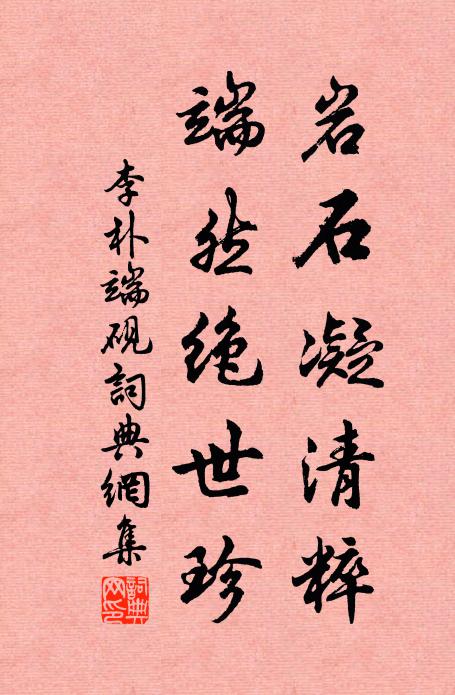 岩石凝清粹
端然绝世珍
李朴端砚詞典網集
詞典网印